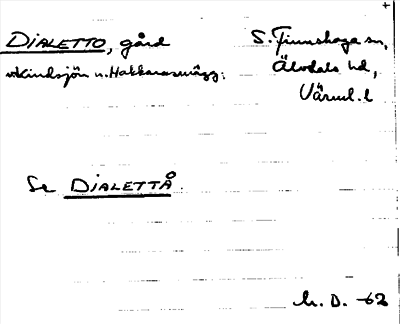 DIALETTO, gård
S. Finnskoga sn,
v. Kindsjön n. Hakkarasmägg:
Älvdals hd,
Värml. l
Se DIALETTÅ.
M. D. -62